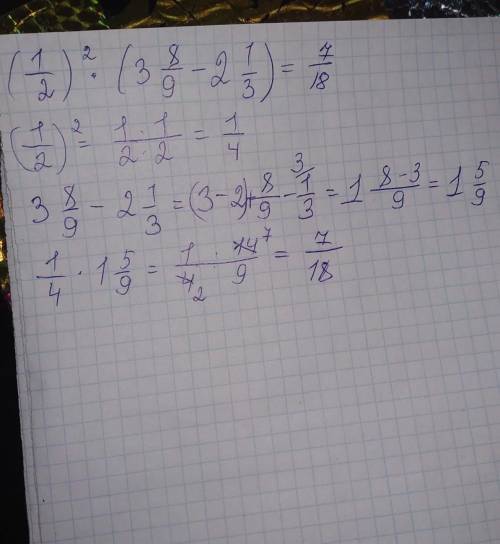 (1/2)² · (3 8/9 - 2 1/3) = 7/18
(1/2)² = 1·1/2·2 = 1/4
3 8/9 - 2 1/3 = (3-2)+8/9 - 3/1/3 = 1 8-3/9 = 1 5/9
1/4 · 1 5/9 = 1·14⁷/4₂ 9 = 7/18